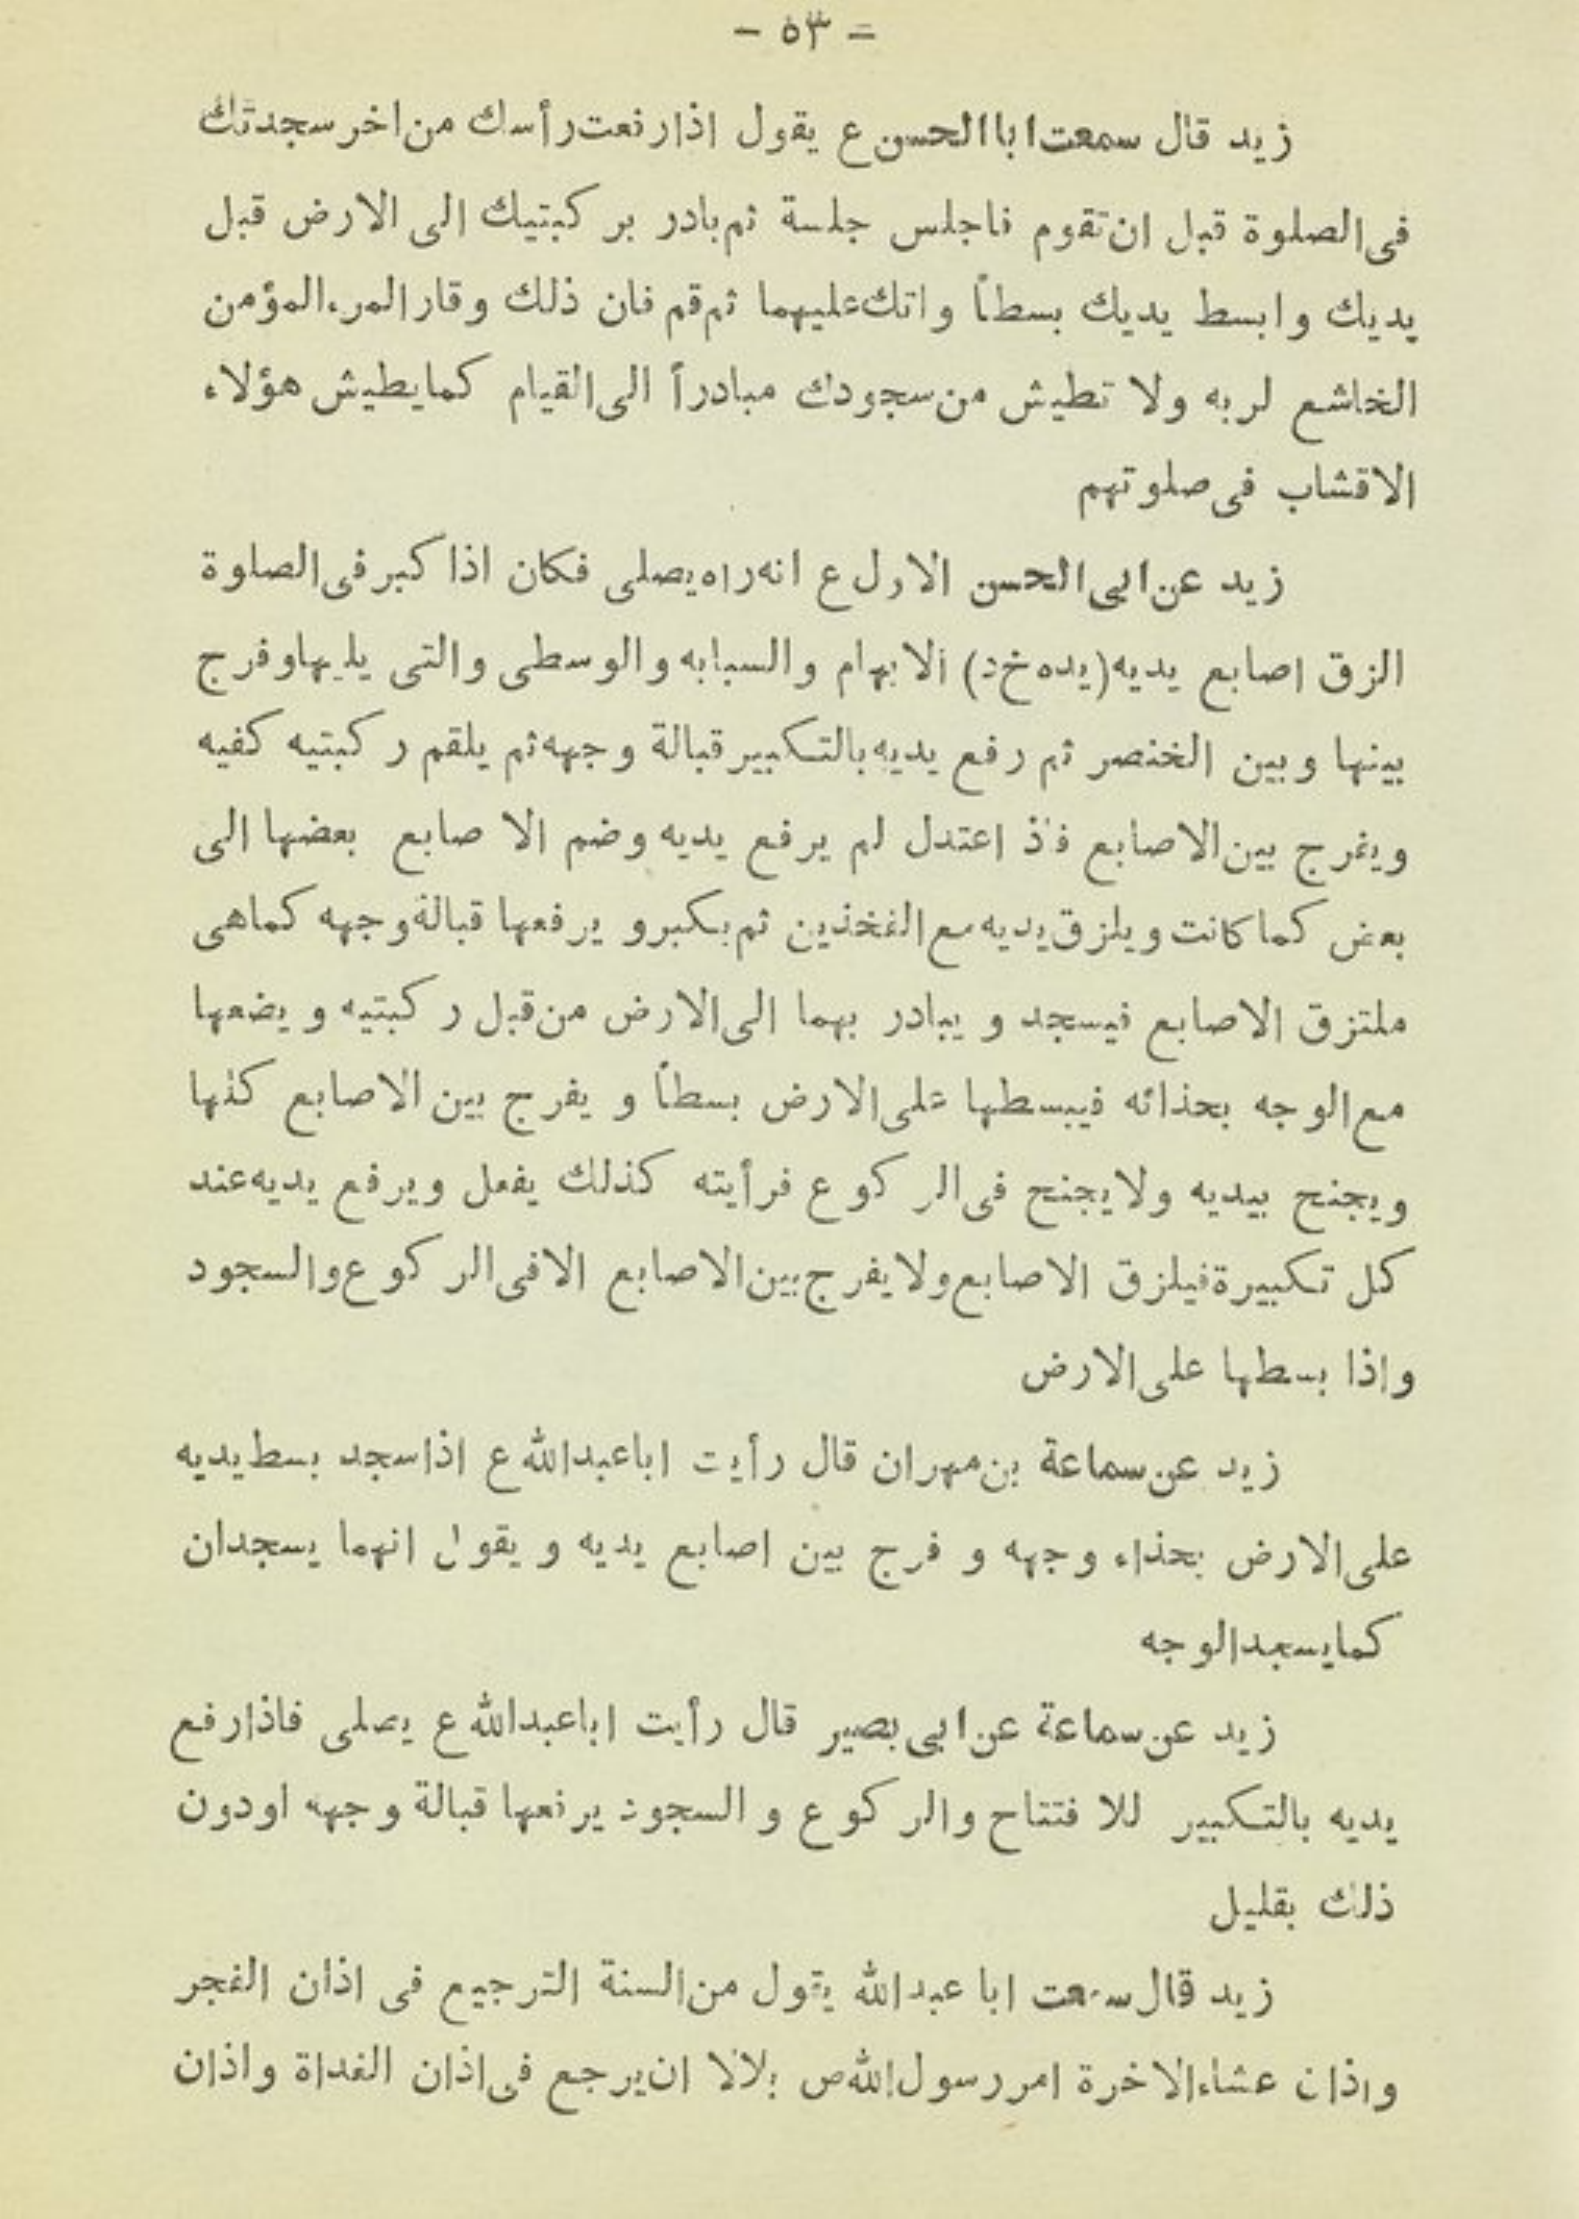 = ٥٣ -
زيد قال سمعت ابا الحسن ع يقول اذا رفعت رأسك من اخر سجدتك
فى الصلوة قبل ان تقوم فاجلس جلسة ثم بادر بر كبتيك الى الارض قبل
يديك وابسط يديك بسطاً واتك عليهما ثم قم فان ذلك وقار المرء المؤمن
الخاشع لربه ولا تطيش من سجودك مبادراً الى القيام كما يطيش هؤلاء
الاقشاب فى صلوتهم
زيد عن ابى الحسن الاول ع انه راه يصلى فكان اذا كبر فى الصلوة
الزق اصابع يديه (يده خ د) الابهام والسبابه والوسطى والتى يليها وفرج
بينها وبين الخنصر ثم رفع يديه بالتكبير قبالة وجهه ثم يلقم ر كبتيه كفيه
ويفرج بين الاصابع فاذ اعتدل لم يرفع يديه وضم الا صابع بعضها الى
بعض كما كانت ويلزق يديه مع الفخذين ثم يكبر و يرفعها قبالة وجهه كماهى
ملتزق الاصابع فيسجد و يبادر بهما الى الارض من قبل ر كبتيه و يضعها
مع الوجه بحذائه فيبسطها على الارض بسطاً و يفرج بين الاصابع كلها
ويجنح بيديه ولا يجنح فى الر كوع فرأيته كذلك يفعل ويرفع يديه عند
كل تكبيرة فيلزق الاصابع ولا يفرج بين الاصابع الا فى الر كوع والسجود
واذا بسطها على الارض
زيد عن سماعة بن مهران قال رأيت ابا عبدالله ع اذا سجد بسط يديه
على الارض بحذاء وجهه و فرج بين اصابع يديه و يقول انهما يسجدان
كما يسجد الوجه
زيد عن سماعة عن ابى بصير قال رأيت ابا عبدالله ع يصلى فاذا رفع
يديه بالتكبير للا فتتاح والر كوع و السجود يرفعها قبالة وجهه او دون
ذلك بقليل
زيد قال سمعت ابا عبدالله يقول من السنة الترجيع فى اذان الفجر
واذان عشاء الاخرة امر رسول الله ص بلالا ان يرجع فى اذان الغداة واذان